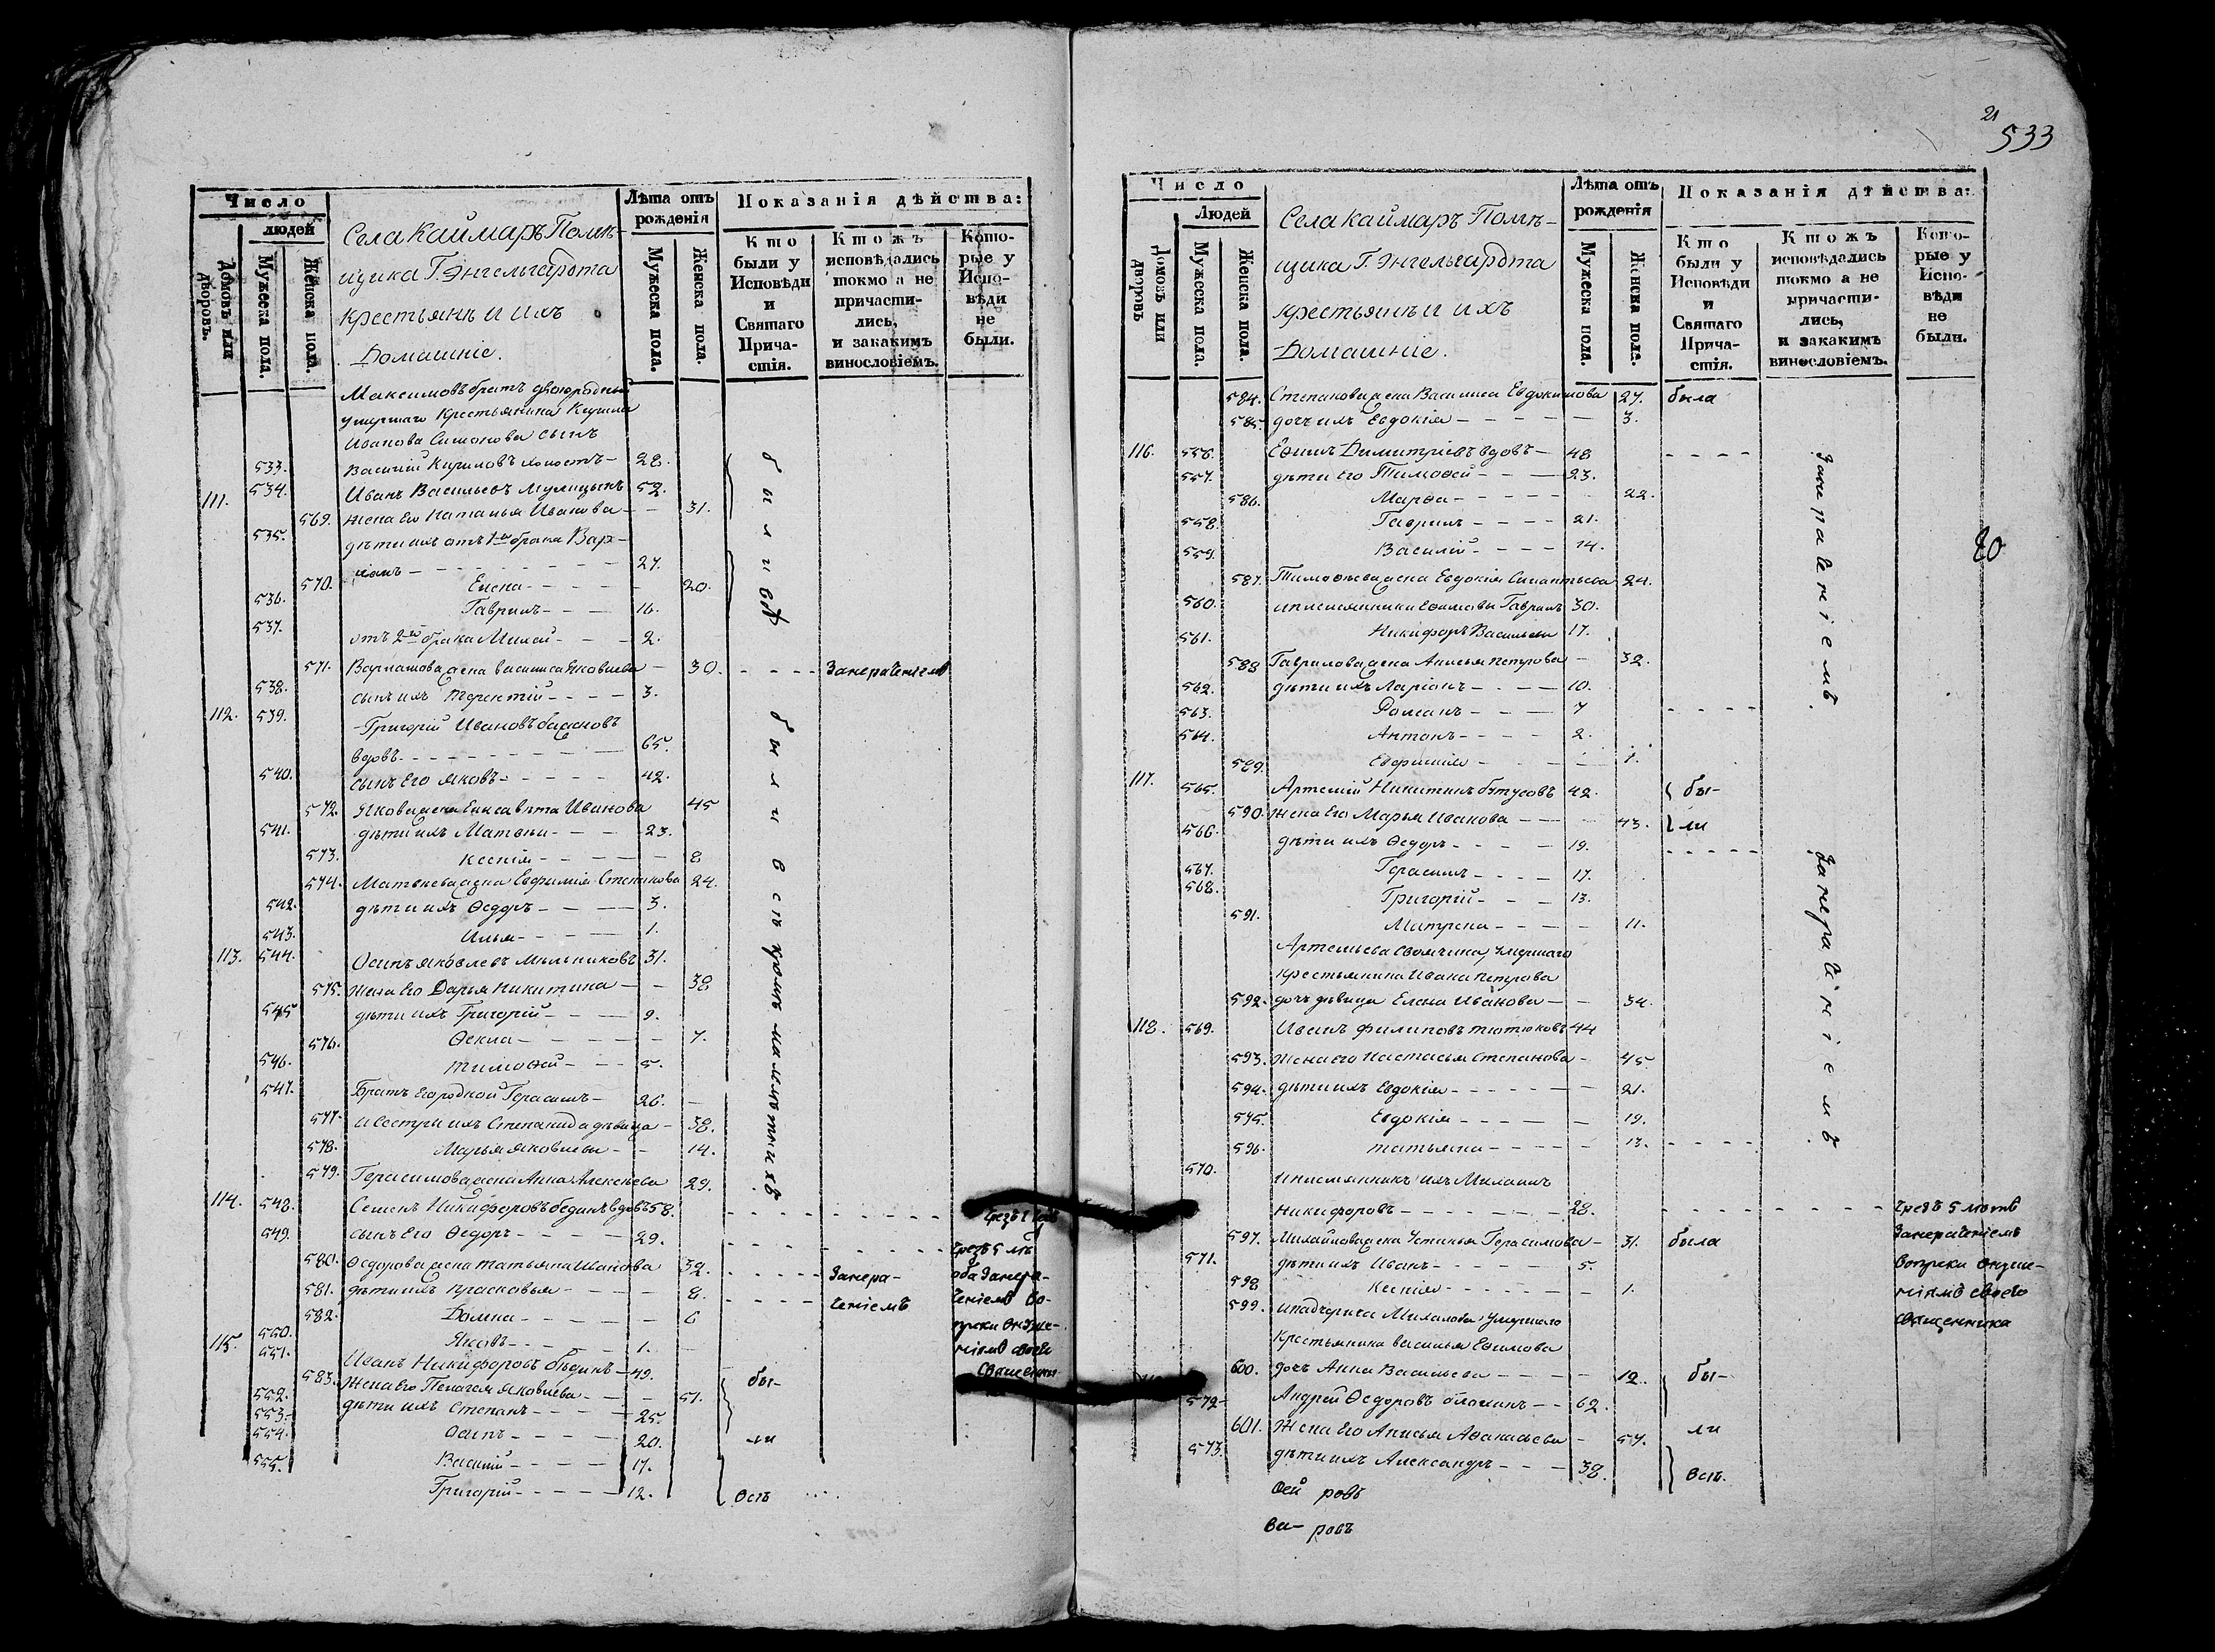 Число
людей
Домовъ или дворовъ.
Мужеска пола.
Женска пола.
Села Каймаръ Помѣ-
щика Г. Энгельгардта
крестьянѣ и ихъ
Домашніе.
Лѣта отъ
рожденія
Мужеска пола.
Женска пола.
Показанія дѣйства:
Кто
были у
Исповѣди
и
Святаго
Прича-
стія.
Ктожъ
исповѣдались
токмо а не
причасти-
лись,
и закакимъ
винословіемъ.
Кото-
рые у
Испо-
вѣди
не
были.
Максимовъ братъ двоюродный
умершаго Крестьянина Кирила
Иванова Симонова сынъ
533. Василій Кириловъ холостъ 28.
111. 534. Иванъ Васильевъ 52.
569. жена Его Наталья Иванова 31.
535. дѣти ихъ отъ 1го брака Вар-
ламъ 27.
570. Елена 20.
536. Гаврилъ 16.
537. отъ 2го брака 2.
были всѣ
571. Варламова жена Василиса Яковлева 30. Занерачениемъ
538. сынъ ихъ Терентій 3.
112. 539. Григорій Ивановъ
вдовъ 65.
540. сынъ Его Яковъ 42.
572. Якова жена Елисавѣта Иванова 45
541. дѣти ихъ Матвѣй 23.
573. Ксенія 8
574. Матвѣева жена Евфимія Степанова 24.
542. дѣти ихъ Ѳедоръ 3.
543. Илья 1.
113. 544. Осипъ Яковлевъ Мыльниковъ 31.
575. жена Его Дарья Никитина 38
545 дѣти ихъ Григорій 9.
576. Ѳекла 7.
546. Тимоѳей 5.
547. Братъ Его родной Герасимъ 26.
577. и сестры ихъ Степанида дѣвица 38.
578. Марья Яковлевы 14.
579. Герасимова жена Анна Алексѣева 29.
были всѣ кромѣ малолѣтныхъ
114. 548. Семенъ Никифоровъ вдовъ 58.
549. сынъ Его Ѳедоръ 29. чрезъ 5 лѣ
580. Ѳедорова жена Татьяна Иванова 32. Занера- оба Занера-
581. дѣти ихъ Прасковья 8. ченіемъ ченіемъ во-
582. Домна 6
550. Яковъ 1.
115. 551. Иванъ Никифоровъ 49.
583. жена Его Пелагея Яковлева 51. бы-
552. дѣти ихъ Степанъ 25.
553. Осипъ 20. ли
554. Василій 17.
555. Григорій 12. всѣ
21
533
Число
Людей
Домовъ или дворовъ
Мужеска пола.
Женска пола.
Села Каймаръ Помѣ-
щика Г. Энгельгардта
крестьянѣ и ихъ
Домашніе.
Лѣта отъ
рожденія
Мужеска пола.
Женска пола.
Показанія дѣйства:
Кто
были у
Исповѣди
и
Святаго
Прича-
стія.
Ктожъ
исповѣдались
токмо а не
причасти-
лись,
и закакимъ
винословіемъ.
Кото-
рые у
Испо-
вѣди
не
были.
584. Степанова жена Василиса Евдокимова 27. была
585. дочь ихъ Евдокія 3.
116. 556. Ефимъ Димитріевъ вдовъ 48
557. дѣти Его Тимоѳей 23.
586. Марѳа 22.
558. Гаврилъ 21.
559. Василій 14.
587. Тимоѳеева жена Евдокія 24.
560. и племянники Ефимовы Гаврилъ 30.
561. Никифоръ Васильевы 17.
588 Гаврилова жена Анисья Петрова 32.
562. дѣти ихъ Ларіонъ 10.
563. Романъ 7
564. Антонъ 2.
589. Евфимія 1.
занерачéніемъ
20
117. 565. Артемій Никитинъ 42. бы-
590. жена Его Марья Иванова 43. ли
566. дѣти ихъ Ѳедоръ 19.
567. Герасимъ 17.
568. Григорій 13.
591. Матрена 11.
Артемьева своячина, умершаго
крестьянина Ивана Петрова
592. дочь дѣвица Елена Иванова 34.
118. 569. Иванъ Филиповъ Тютюковъ 44
593. жена его Настасья Степанова 45.
594. дѣти ихъ Евдокія 21.
595. Евдокія 19.
596. Татьяна 13.
занераченіемъ
570. и племянникъ ихъ Михаилъ
Никифоровъ 28. чрезъ 5 лѣтъ
597. Михайлова жена Устинья Герасимова 31. была Занераченіемъ
571. дѣти ихъ Иванъ 5. вопреки внуше-
598 Ксенія 1. ніямъ своего
599. и падчерица Михайлова умершаго священника
Крестьянина Василья Ефимова
600. дочь Анна Васильева 12. бы-
572. Андрей Ѳедоровъ 62.
601. Жена Его Анисья Аѳанасьева 57. ли
573. дѣти ихъ Александръ 38. всѣ.
ѳей ровъ
ва- ровъ